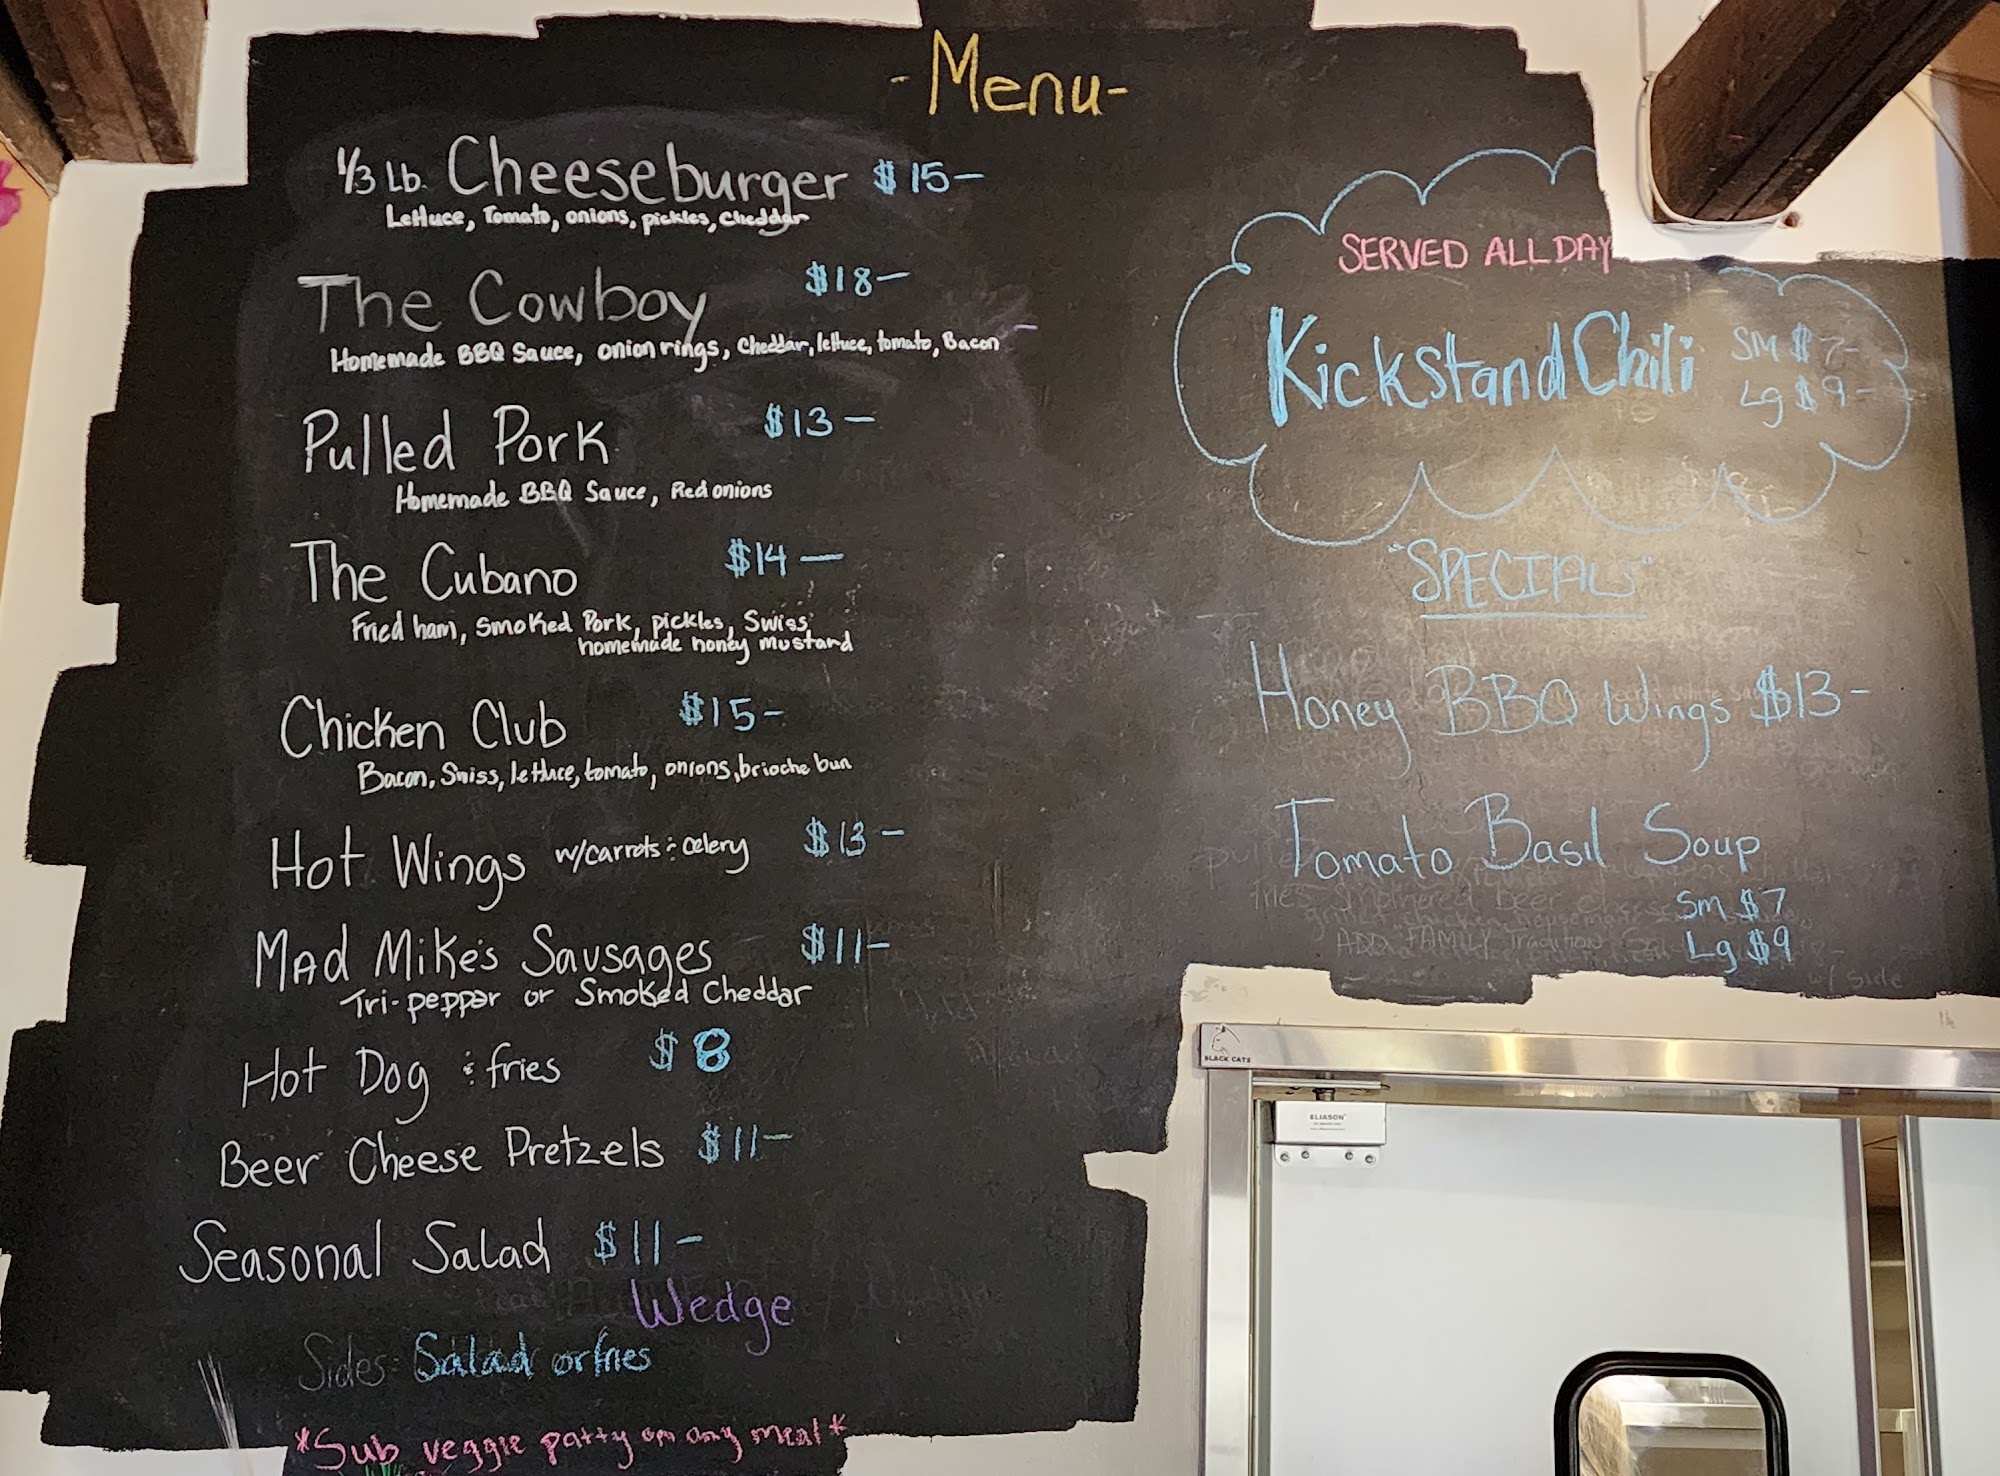 -Menu-
1/3 Lb. Cheeseburger $15-
Lettuce, Tomato, onions, pickles, cheddar
The Cowboy $18-
Homemade BBQ Sauce, onion rings, cheddar, lettuce, tomato, Bacon
Pulled Pork $13-
Homemade BBQ Sauce, Red onions
The Cubano $14-
Fried ham, Smoked Pork, pickles, Swiss,
homemade honey mustard
Chicken Club $15-
Bacon, Swiss, lettuce, tomato, onions, brioche bun
Hot Wings w/carrots & celery $13-
MAd Mike's Sausages $11-
Tri-pepper or Smoked Cheddar
Hot Dog & fries $8
Beer Cheese Pretzels $11-
Seasonal Salad $11-
Wedge
Sides: Salad or fries
*Sub veggie patty on any meal*
SERVED ALL DAY
Kickstand Chili
SM $7-
Lg $9-
"SPECIALS"
Honey BBQ Wings $13-
Tomato Basil Soup
Sm $7
Lg $9
w/ side
BLACK CATS
ELIASON